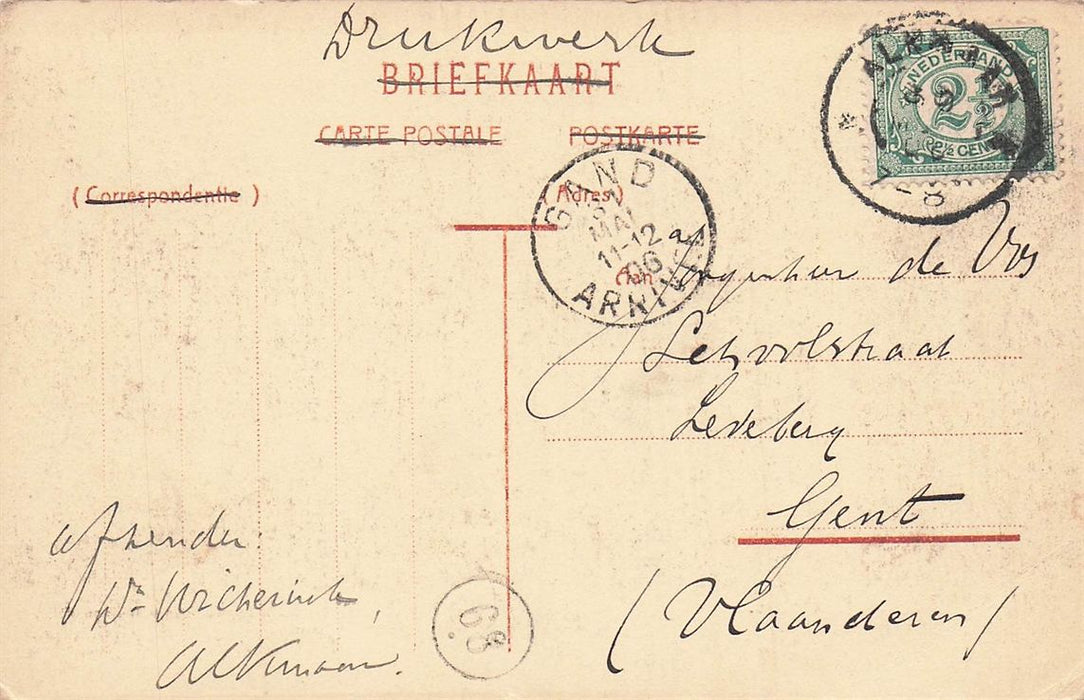 Drukwerk
BRIEFKAART
CARTE POSTALE POSTKARTE
( Correspondentie ) (Adres)
ALKMAAR
NEDERLAND
2½
CENT
GAND
31
MAI
11-12
06
ARRIVÉE
(Aan
Jongenheer de Vos
Schoolstraat
Ledeberg
Gent
(Vlaanderen)
afzender:
Wm Wicherink,
Alkmaar.
68